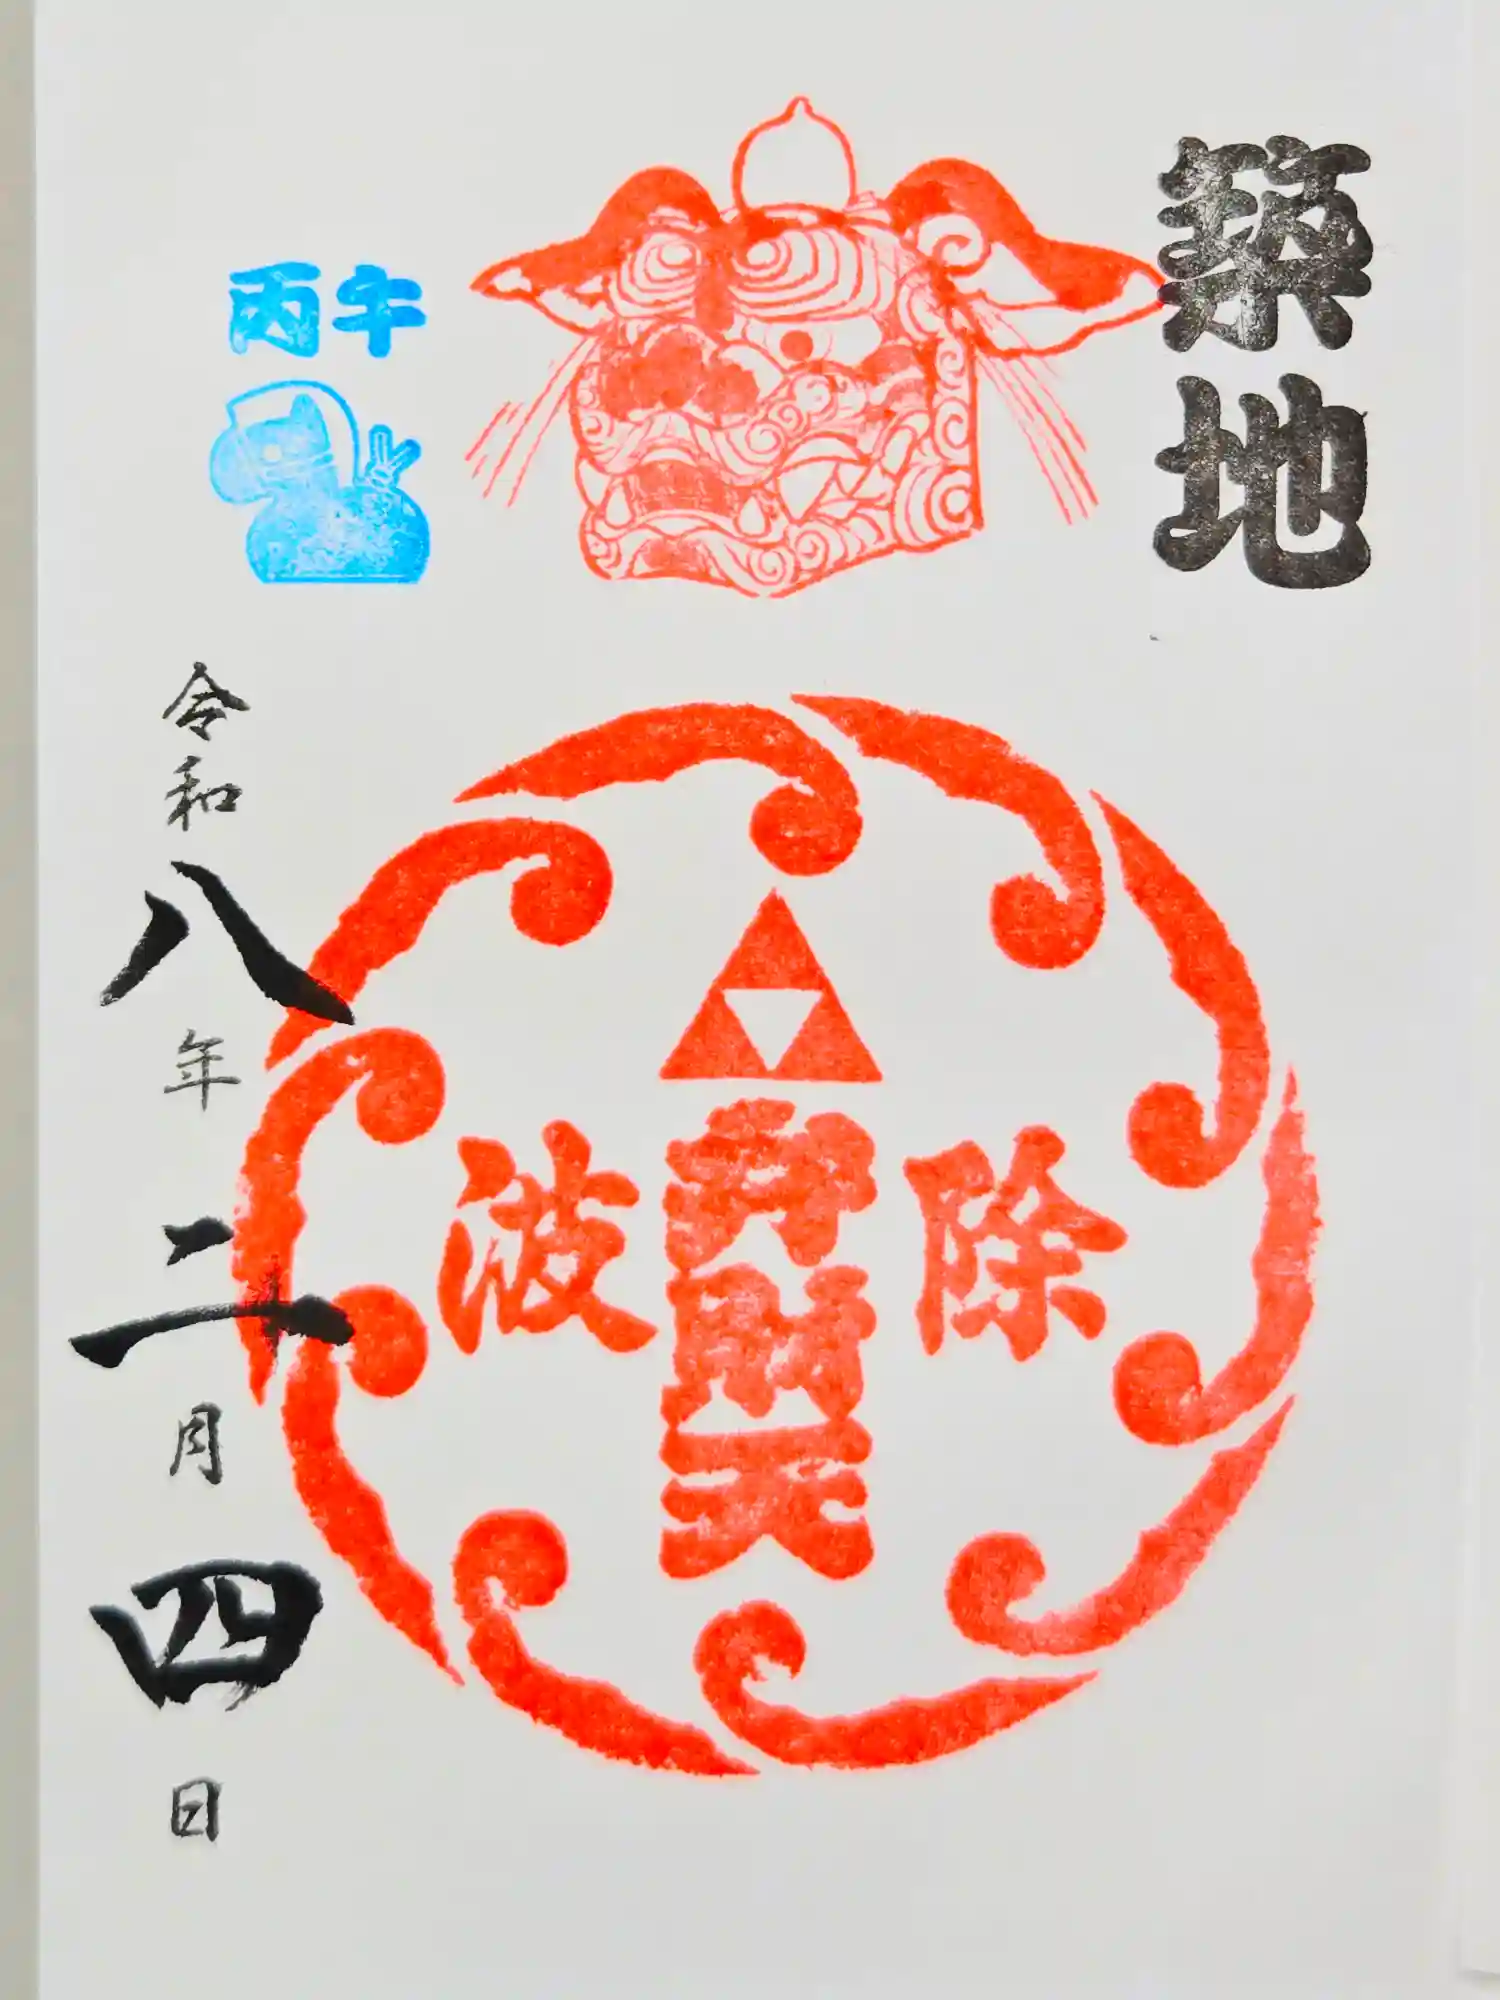 築地
丙午
除
弁財天
波
令和八年二月四日